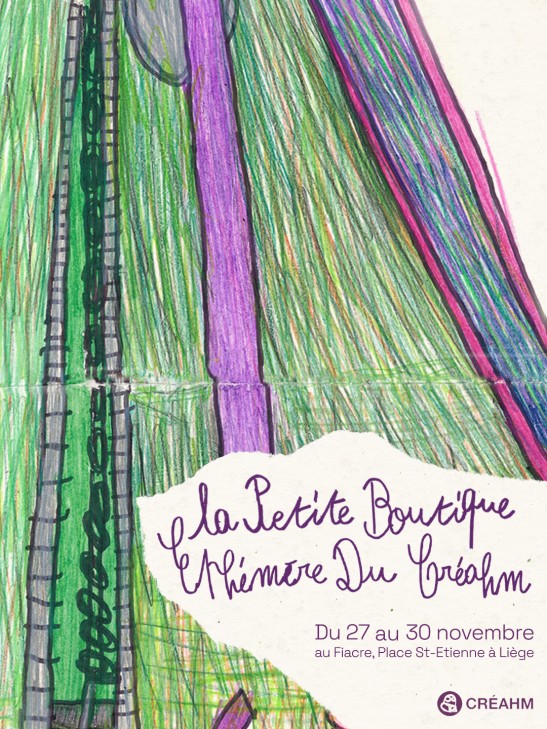 la Petite Boutique
Ethémère Du Créahm
Du 27 au 30 novembre
au Fiacre, Place St-Etienne à Liège
CRÉAHM